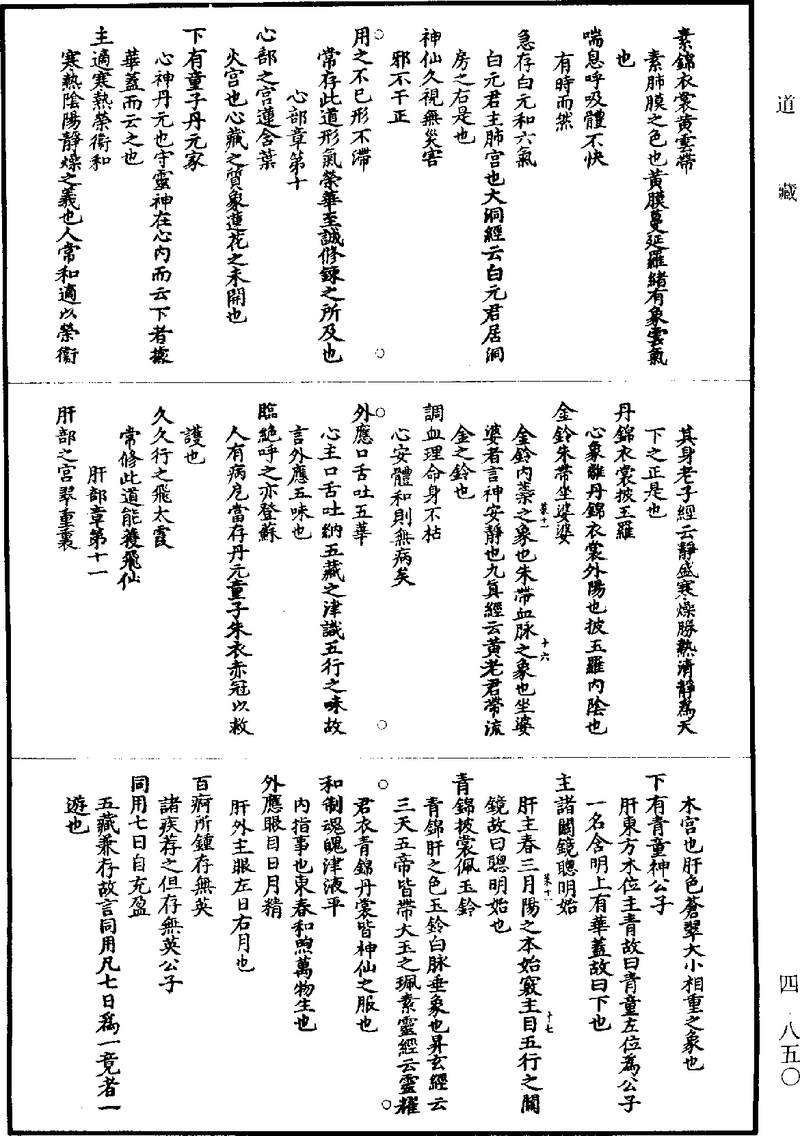 道藏
素錦衣裳黃雲帶
素肺膜之色也黃膜蔓延羅緒有象雲氣
也
喘息呼吸體不快
有時而然
急存白元和六氣
白元君主肺宮也大洞經云白元君居洞
房之右是也
神仙久視無災害
邪不干正
用之不已形不滯
常存此道形氣榮華至誠修鍊之所及也
心部章第十
心部之宮蓮含葉
火宮也心藏之質象蓮花之未開也
下有童子丹元家
心神丹元也守靈神在心內而云下者據
華蓋而云之也
主適寒熱榮衛和
寒熱陰陽靜燥之義也人常和適以榮衛
其身老子經云靜盛寒燥勝熱清靜為天
下之正是也
丹錦衣裳披玉羅
心象離丹錦衣裳外陽也披玉羅內陰也
金鈴朱帶坐婆娑
金鈴內蘂之象也朱帶血脉之象也坐婆
婆者言神安靜也九真經云黃老君帶流
金之鈴也
調血理命身不枯
心安體和則無病矣
外應口舌吐五華
心主口舌吐納五藏之津識五行之味故
言外應五味也
臨絕呼之亦登蘇
人有病厄當存丹元童子朱衣赤冠以救
護也
久久行之飛太霞
常修此道能獲飛仙
肝部章第十一
肝部之宮翠重裏
木宮也肝色蒼翠大小相重之象也
下有青童神公子
肝東方木位主青故曰青童左位為公子
一名含明上有華蓋故曰下也
主諸關鏡聰明始
肝主春三月陽之本始竅主目五行之關
鏡故曰聰明始也
青錦披裳佩玉鈴
青錦肝之色玉鈴白脉垂象也昇玄經云
三天五帝皆帶大玉之珮素靈經云靈耀
君衣青錦丹裳皆神仙之服也
和制魂魄津液平
內指事也東春和煦萬物生也
外應眼目日月精
肝外主眼左日右月也
百痾所鍾存無英
諸疾存之但存無英公子
同用七日自充盈
五藏兼存故言同用凡七日為一竟者一
遊也
十六
十七
四 八五〇